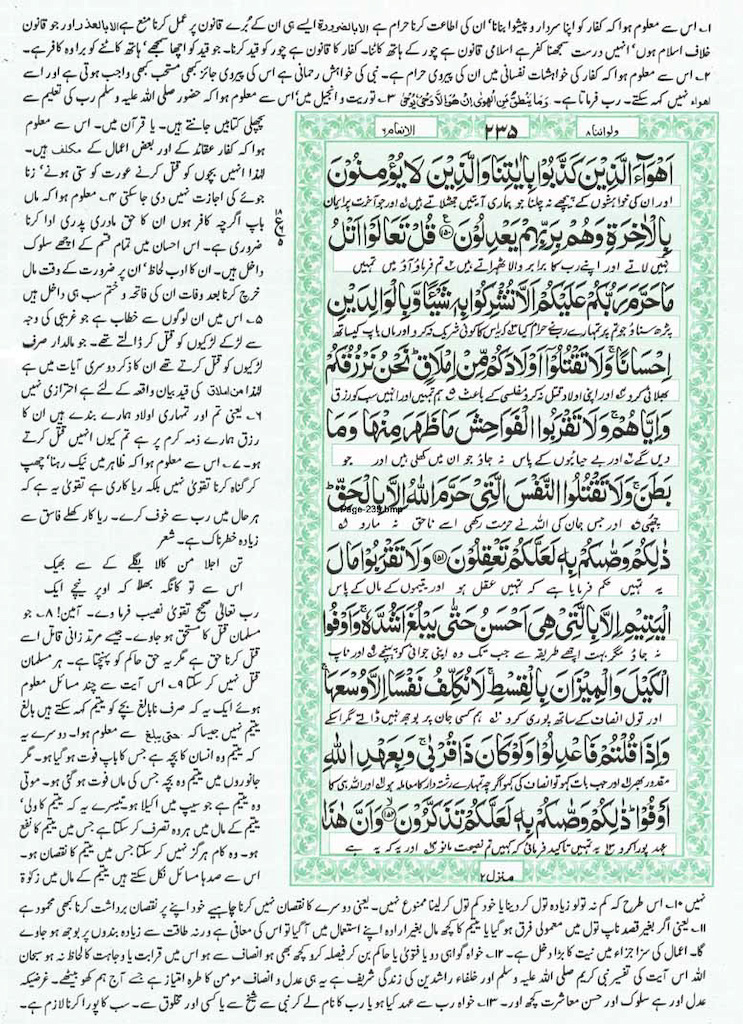 ۱۔ اس سے معلوم ہوا کہ کفار کو اپنا سردار و پیشوا بنانا' ان کی اطاعت کرنا حرام ہے الا بالضرورۃ ایسے ہی ان کے بُرے قانون پر عمل کرنا منع ہے الا بالعذر اور جو قانون
خلاف اسلام ہوں' انہیں درست سمجھنا کفر ہے اسلامی قانون ہے چور کے ہاتھ کاٹنا۔ کفار کا قانون ہے چور کو قید کرنا۔ جو قید کو اچھا سمجھے' ہاتھ کاٹنے کو برا وہ کافر ہے۔
۲۔ اس سے معلوم ہوا کہ کفار کی خواہشات نفسانی میں ان کی پیروی حرام ہے۔ نبی کی خواہش رحمانی ہے اس کی پیروی جائز بھی مستحب کبھی واجب ہوتی ہے اور اسے
اھواء نہیں کہہ سکتے۔ رب فرماتا ہے۔ وَمَا يَنْطِقُ عَنِ الْهَوٰى اِنْ هُوَ اِلَّا وَحْيٌ يُّوْحٰى ۳۔ توریت و انجیل میں' اس سے معلوم ہوا کہ حضور صلی اللہ علیہ وسلم رب کی تعلیم سے
پچھلی کتابیں جانتے ہیں۔ یا قرآن میں۔ اس سے معلوم
ہوا کہ کفار عقائد کے اور بعض اعمال کے مکلف ہیں۔
لہٰذا انہیں بچوں کو قتل کرنے عورت کو ستی ہونے' زنا
جوئے کی اجازت نہیں دی جا سکتی ۴۔ معلوم ہوا کہ ماں
باپ اگرچہ کافر ہوں ان کا حق مادری پدری ادا کرنا
ضروری ہے۔ اس احسان میں تمام قسم کے اچھے سلوک
داخل ہیں۔ ان کا ادب لحاظ' ان پر ضرورت کے وقت مال
خرچ کرنا بعد وفات ان کی فاتحہ و ختم سب ہی داخل ہیں
۵۔ اس میں ان لوگوں سے خطاب ہے جو غریبی کی وجہ
سے لڑکے لڑکیوں کو قتل کر ڈالتے تھے۔ جو مالدار صرف
لڑکیوں کو قتل کرتے تھے ان کا ذکر دوسری آیات میں ہے
لہٰذا من املاق کی قید بیان واقعہ کے لئے ہے احترازی نہیں
۶۔ یعنی تم اور تمہاری اولاد ہمارے بندے ہیں ان کا
رزق ہمارے ذمہ کرم پر ہے تم کیوں انہیں قتل کرتے
ہو۔ ۷۔ اس سے معلوم ہوا کہ ظاہر میں نیک رہنا' چھپ
کر گناہ کرنا تقویٰ نہیں بلکہ ریاکاری ہے تقویٰ یہ ہے کہ
ہر حال میں رب سے خوف کرے۔ ریا کار کھلے فاسق سے
زیادہ خطرناک ہے۔ شعر
تن اجلا من کالا بگلے کے سے بھیک
اس سے تو کانگہ بھلا کہ اوپر نیچے ایک
رب تعالیٰ صحیح تقویٰ نصیب فرما دے۔ آمین! ۸۔ جو
مسلمان قتل کا مستحق ہو جاوے۔ جیسے مرتد زانی قاتل اسے
قتل کرنا حق ہے مگر یہ حق حاکم کو پہنچتا ہے۔ ہر مسلمان
قتل نہیں کر سکتا ۹۔ اس آیت سے چند مسائل معلوم
ہوئے ایک یہ کہ صرف نابالغ بچے کو یتیم کہہ سکتے ہیں بالغ
یتیم نہیں جیسا کہ حتی یبلغ سے معلوم ہوا۔ دوسرے یہ
کہ یتیم وہ انسان کا بچہ ہے جس کا باپ فوت ہو گیا ہو۔ مگر
جانوروں میں یتیم وہ بچہ جس کی ماں فوت ہو گئی ہو۔ موتی
وہ یتیم ہے جو سیپ میں اکیلا ہو۔ تیسرے یہ کہ یتیم کا ولی'
یتیم کے مال میں ہر وہ تصرف کر سکتا ہے جس میں یتیم کا نفع
ہو۔ وہ کام ہرگز نہیں کر سکتا جس میں یتیم کا نقصان ہو۔
اس سے صدہا مسائل نکل سکتے ہیں یتیم کے مال میں زکوٰۃ
ولواننا ۸
۲۳۵
الانعام ۶
اَهْوَآءَ الَّذِيْنَ كَذَّبُوْا بِاٰيٰتِنَا وَالَّذِيْنَ لَا يُؤْمِنُوْنَ
اور ان کی خواہشوں کے پیچھے نہ چلنا جو ہماری آیتیں جھٹلاتے ہیں اور جو آخرت پر ایمان
بِالْاٰخِرَةِ وَهُمْ بِرَبِّهِمْ يَعْدِلُوْنَ ۝۱۵۰ قُلْ تَعَالَوْا اَتْلُ
نہیں لاتے اور اپنے رب کا برابر والا ٹھہراتے ہیں تم فرماؤ آؤ میں تمہیں
مَا حَرَّمَ رَبُّكُمْ عَلَيْكُمْ اَلَّا تُشْرِكُوْا بِهٖ شَيْـًٔا وَّبِالْوَالِدَيْنِ
پڑھ سناؤں جو تم پر تمہارے رب نے حرام کیا یہ کہ اس کا کوئی شریک نہ کرو اور ماں باپ کیساتھ
اِحْسَانًا ۚ وَلَا تَقْتُلُوْٓا اَوْلَادَكُمْ مِّنْ اِمْلَاقٍ ؕ نَحْنُ نَرْزُقُكُمْ
بھلائی کرو اور اپنی اولاد قتل نہ کرو مفلسی کے باعث ۵ ہم تمہیں اور انہیں سب کو رزق
وَاِيَّاهُمْ ۚ وَلَا تَقْرَبُوا الْفَوَاحِشَ مَا ظَهَرَ مِنْهَا وَمَا
دیں گے ۶ اور بے حیائیوں کے پاس نہ جاؤ جو ان میں کھلی ہیں اور جو
بَطَنَ ۚ وَلَا تَقْتُلُوا النَّفْسَ الَّتِيْ حَرَّمَ اللّٰهُ اِلَّا بِالْحَقِّ ؕ
چھپی ۷ اور جس جان کی اللہ نے حرمت رکھی اسے ناحق نہ مارو ۸
Page-235.bmp
ذٰلِكُمْ وَصّٰىكُمْ بِهٖ لَعَلَّكُمْ تَعْقِلُوْنَ ۝۱۵۱ وَلَا تَقْرَبُوْا مَالَ
یہ تمہیں حکم فرمایا ہے کہ تمہیں عقل ہو اور یتیموں کے مال کے پاس
الْيَتِيْمِ اِلَّا بِالَّتِيْ هِيَ اَحْسَنُ حَتّٰى يَبْلُغَ اَشُدَّهٗ ۚ وَاَوْفُوا
نہ جاؤ مگر بہت اچھے طریقہ سے جب تک وہ اپنی جوانی کو پہنچے ۹ اور ناپ
الْكَيْلَ وَالْمِيْزَانَ بِالْقِسْطِ ۚ لَا نُكَلِّفُ نَفْسًا اِلَّا وُسْعَهَا ۚ
اور تول انصاف کے ساتھ پوری کرو ہم کسی جان پر بوجھ نہیں ڈالتے مگر اسکے
وَاِذَا قُلْتُمْ فَاعْدِلُوْا وَلَوْ كَانَ ذَا قُرْبٰى ۚ وَبِعَهْدِ اللّٰهِ
مقدور بھر اور جب بات کہو تو انصاف کی کہو اگرچہ تمہارے رشتہ دار کا معاملہ ہو اور اللہ ہی کا
اَوْفُوْا ؕ ذٰلِكُمْ وَصّٰىكُمْ بِهٖ لَعَلَّكُمْ تَذَكَّرُوْنَ ۝۱۵۲ وَاَنَّ هٰذَا
عہد پورا کرو یہ تمہیں تاکید فرمائی کہ کہیں تم نصیحت مانو اور یہ کہ یہ ہے
منزل ۲
نہیں ۱۰۔ اس طرح کہ کم نہ تولو زیادہ تول کر دینا یا خود کم تول کر لینا ممنوع نہیں۔ یعنی دوسرے کا نقصان نہیں کرنا چاہیے خود اپنے پر نقصان برداشت کرنا بھی محمود ہے
۱۱۔ یعنی اگر بغیر قصد ناپ تول میں معمولی فرق ہو گیا یا یتیم کا کچھ مال بغیر ارادہ اپنے استعمال میں آ گیا تو اس کی معافی ہے ورنہ طاقت سے زیادہ بندوں پر بوجھ ہو جاوے
گا۔ اعمال کی سزا جزاء میں نیت کا بڑا دخل ہے۔ ۱۲۔ خواہ گواہی دو یا فتویٰ یا حاکم بن کر فیصلہ کرو کچھ بھی ہو انصاف سے ہو اس میں قرابت یا وجاہت کا لحاظ نہ ہو سبحان
اللہ اس آیت کی تفسیر نبی کریم صلی اللہ علیہ وسلم اور خلفاء راشدین کی زندگی شریف ہے یہ ہی عدل و انصاف مومن کا طرہ امتیاز ہے جسے آج ہم کھو بیٹھے۔ غرضیکہ
عدل اور ہے سلوک اور حسن معاشرت کچھ اور۔ ۱۳۔ خواہ رب سے عہد کیا ہو یا رب کا نام لے کر نبی سے شیخ سے یا کسی اور مخلوق سے۔ سب کا پورا کرنا لازم ہے۔